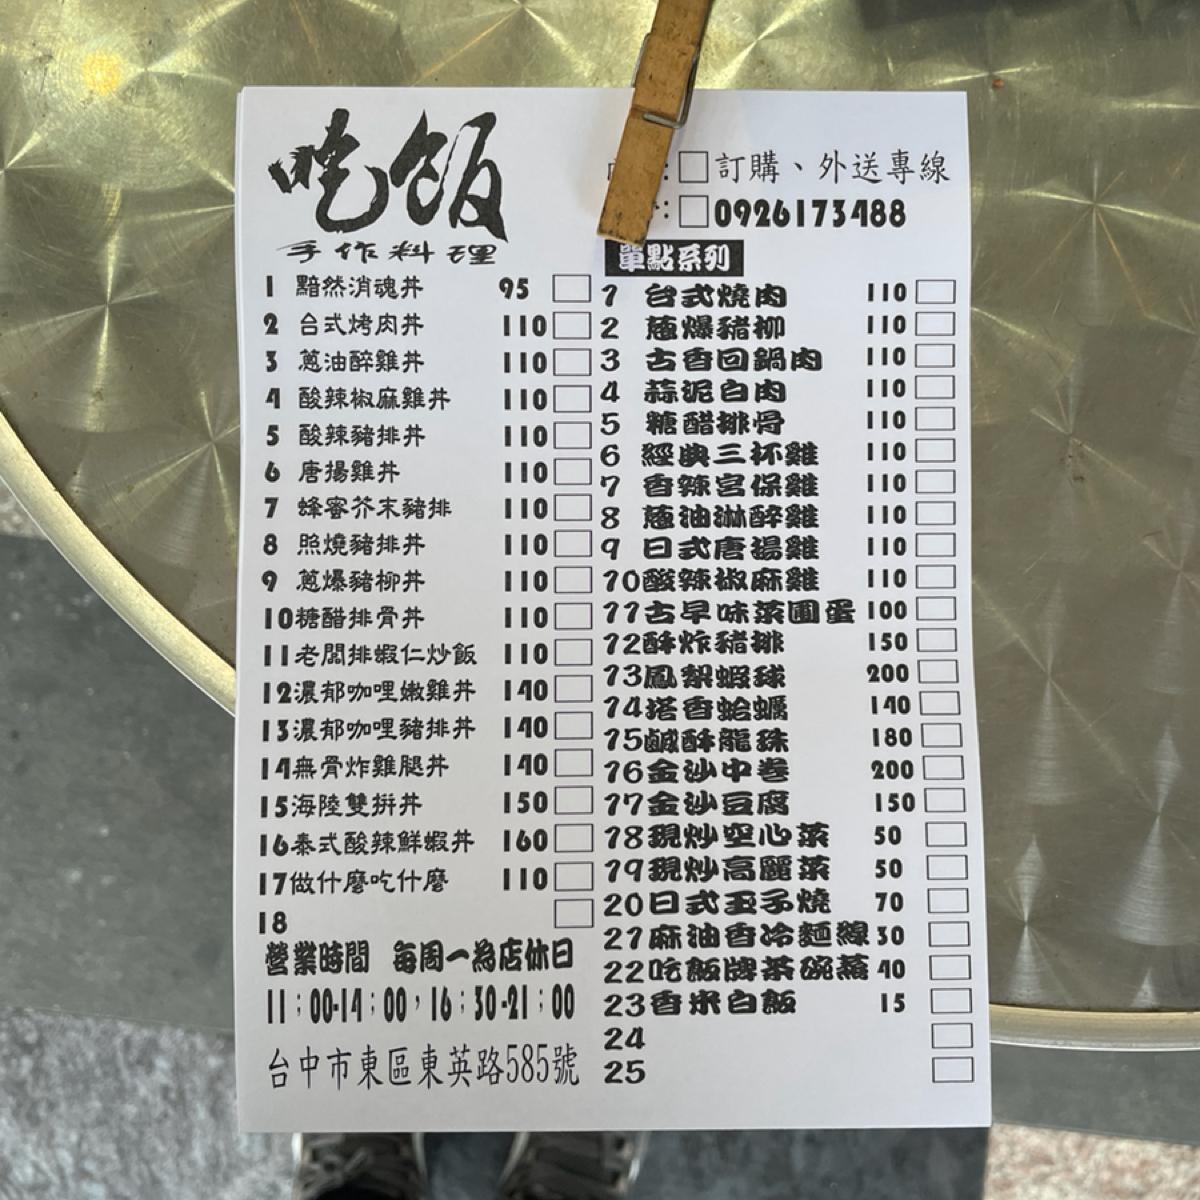 吃飯
手作料理
訂購、外送專線
0926173488
1 黯然消魂丼 95
2 台式烤肉丼 110
3 蔥油醉雞丼 110
4 酸辣椒麻雞丼 110
5 酸辣豬排丼 110
6 唐揚雞丼 110
7 蜂蜜芥末豬排 110
8 照燒豬排丼 110
9 蔥爆豬柳丼 110
10糖醋排骨丼 110
11老闆排蝦仁炒飯 110
12濃郁咖哩嫩雞丼 140
13濃郁咖哩豬排丼 140
14無骨炸雞腿丼 140
15海陸雙拼丼 150
16泰式酸辣鮮蝦丼 160
17做什麼吃什麼 110
18
營業時間 每周一為店休日
11:00-14:00,16:30-21:00
台中市東區東英路585號
單點系列
1 台式燒肉 110
2 蔥爆豬柳 110
3 古香回鍋肉 110
4 蒜泥白肉 110
5 糖醋排骨 110
6 經典三杯雞 110
7 香辣宮保雞 110
8 蔥油淋醉雞 110
9 日式唐揚雞 110
10酸辣椒麻雞 110
11古早味菜圃蛋 100
12酥炸豬排 150
13鳳梨蝦球 200
14塔香蛤蠣 140
15鹹酥龍珠 180
16金沙中卷 200
17金沙豆腐 150
18現炒空心菜 50
19現炒高麗菜 50
20日式玉子燒 70
21麻油香冷麵線 30
22吃飯牌茶碗蒸 40
23香米白飯 15
24
25